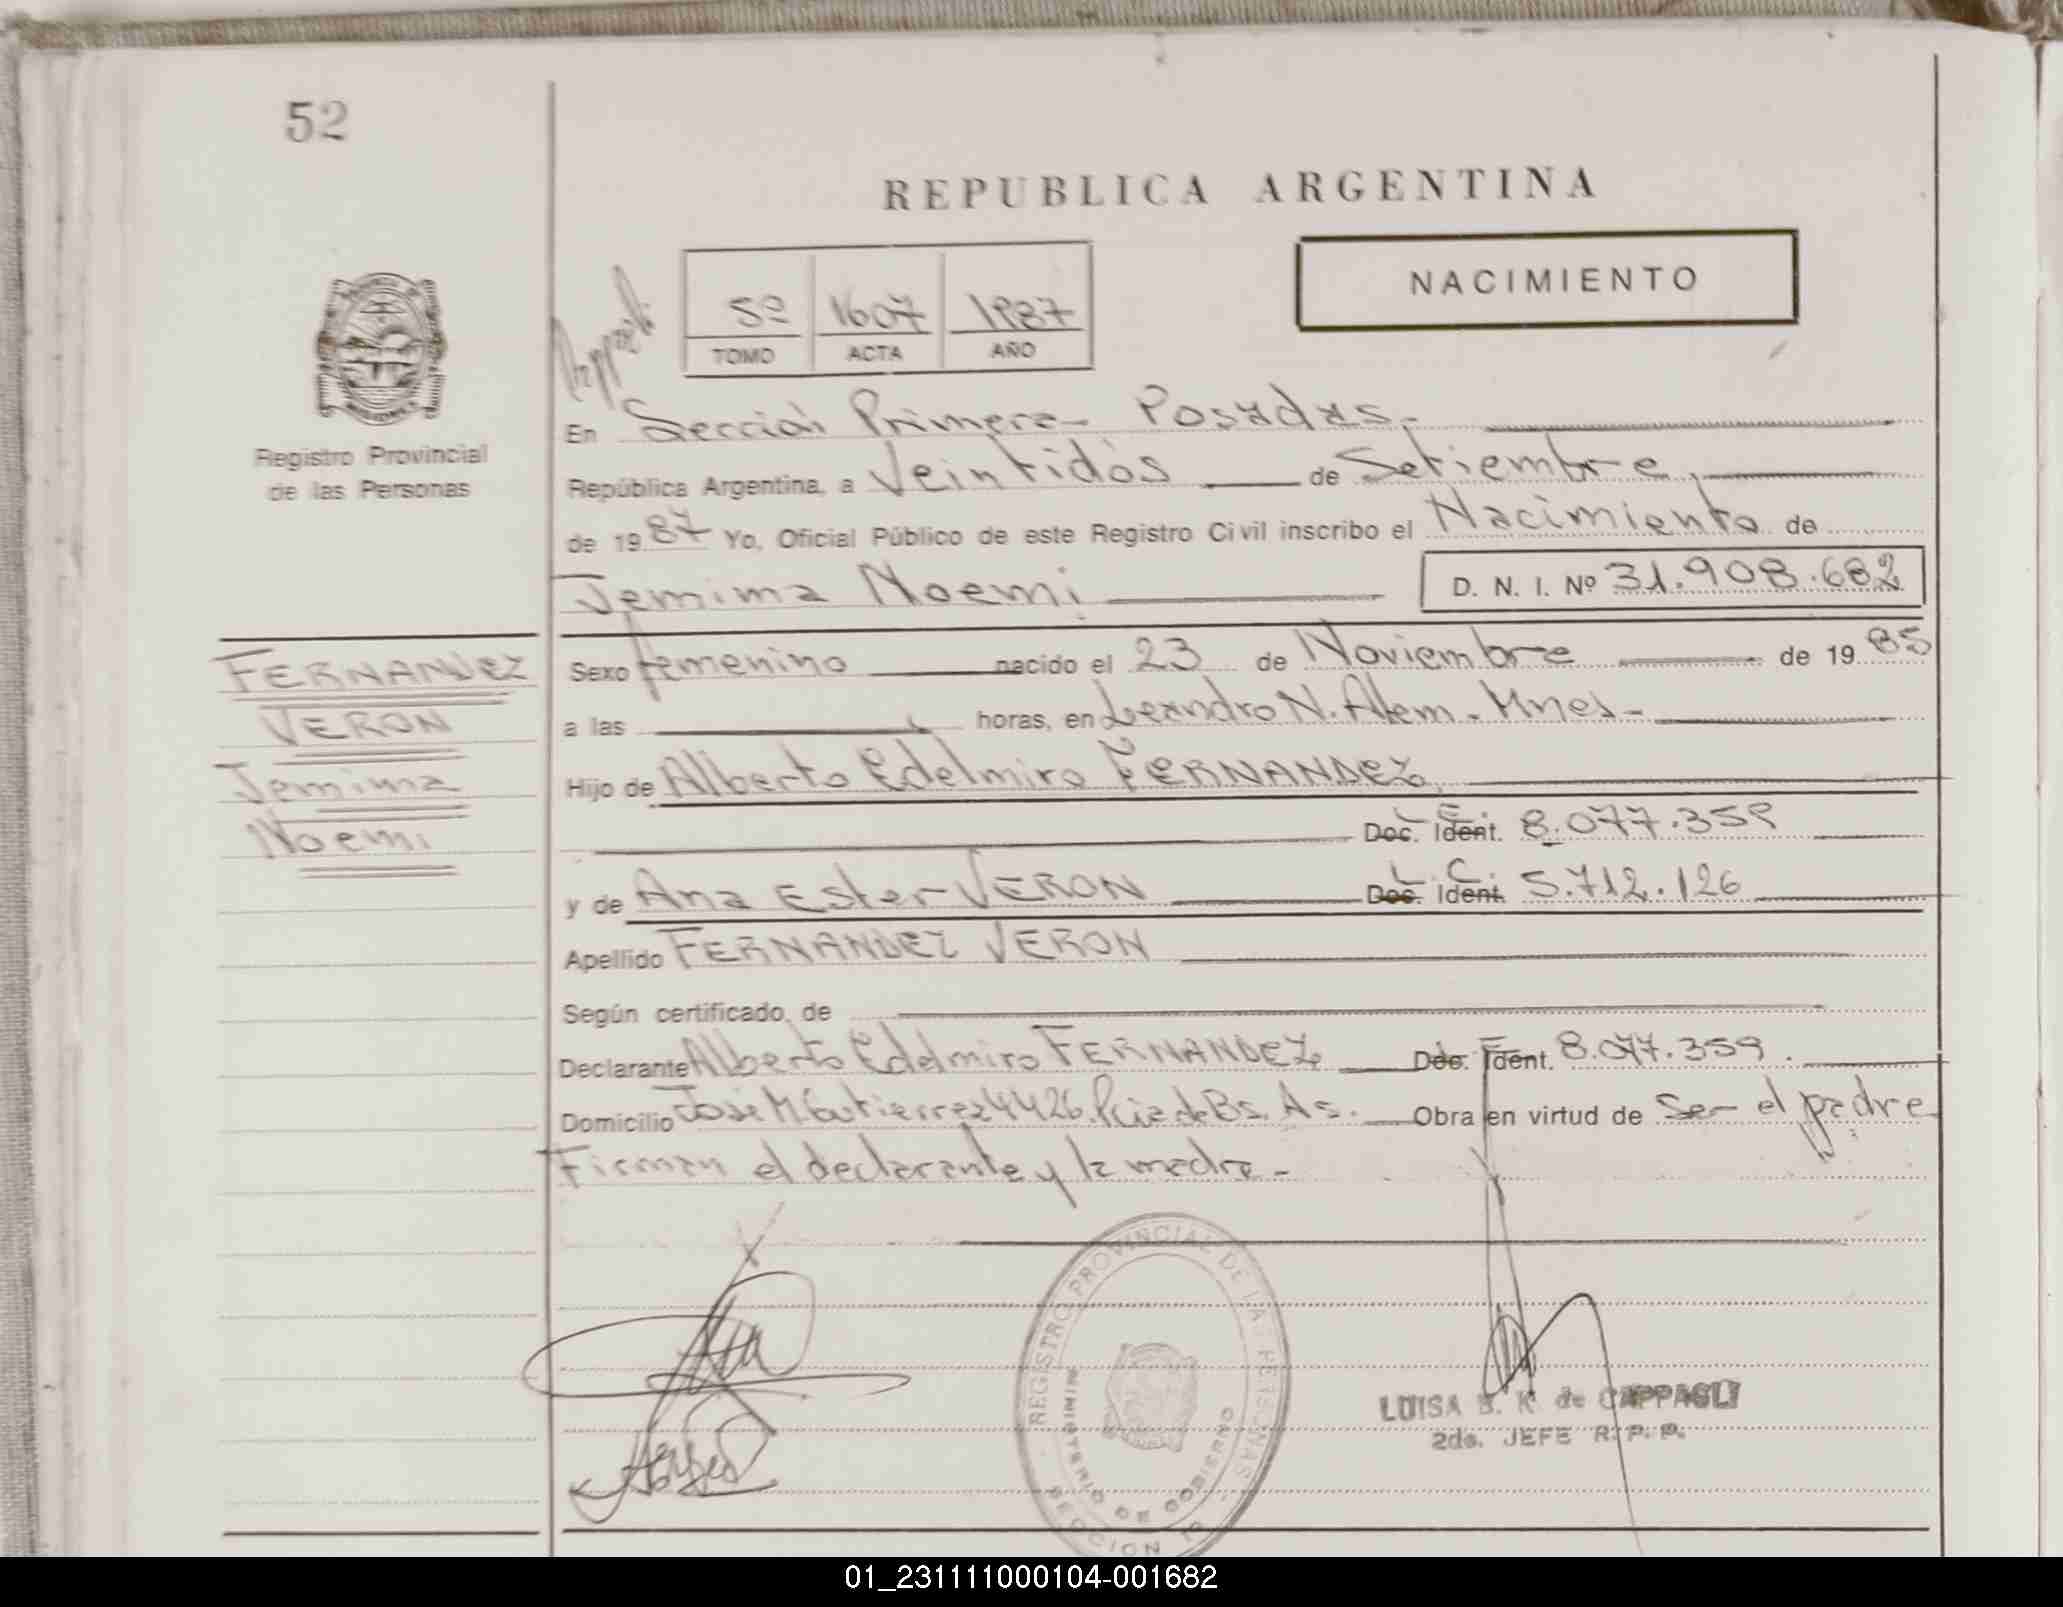 52
REPUBLICA ARGENTINA
NACIMIENTO
5º 1607 1987
TOMO ACTA AÑO
Registro Provincial
de las Personas
En Sección Primera - Posadas.
República Argentina, a Veintidós de Setiembre,
de 1987 Yo, Oficial Público de este Registro Civil inscribo el Nacimiento de
Jemima Noemi D. N. I. Nº 31.908.682
FERNANDEZ
VERON
Jemima
Noemi
Sexo femenino nacido el 23 de Noviembre de 1985
a las horas, en Leandro N. Alem - Mnes -
Hijo de Alberto Edelmiro FERNANDEZ,
Doc. Ident. L. E. 8.077.359
y de Ana Ester VERON Doc. Ident. L. C. 5.712.126
Apellido FERNANDEZ VERON
Según certificado de
Declarante Alberto Edelmiro FERNANDEZ Doc. Ident. 8.077.359.
Domicilio José M. Gutierrez 4426. Pcia de Bs. As. Obra en virtud de Ser el padre
Firman el declarante y la madre -
REGISTRO PROVINCIAL DE LAS PERSONAS
MINISTERIO DE GOBIERNO
SECCION 1ª
LUISA S. K. de CAPPAGLI
2do. JEFE R. P. P.
01_231111000104-001682